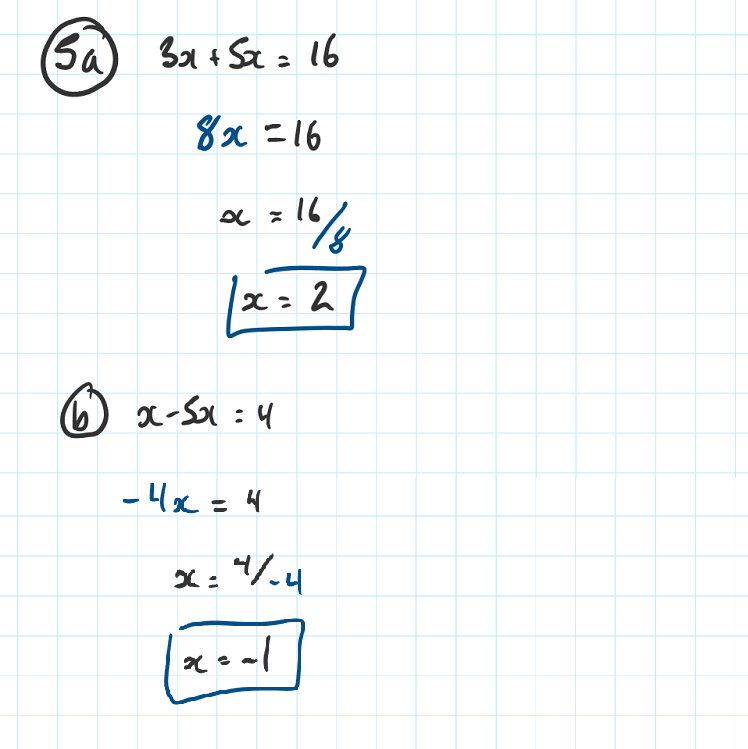 5a 3x + 5x = 16
8x = 16
x = 16/8
x = 2
b x - 5x = 4
-4x = 4
x = 4/-4
x = -1